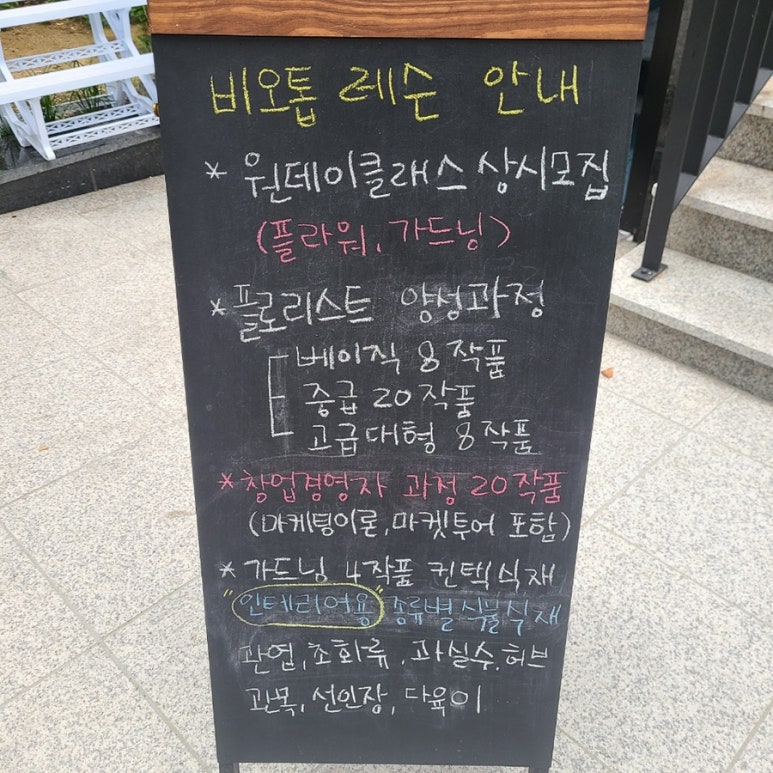 비오톱 레슨 안내
* 원데이클래스 상시모집
(플라워, 가드닝)
* 플로리스트 양성과정
베이직 8작품
중급 20작품
고급대형 8작품
* 창업경영자 과정 20작품
(마케팅이론, 마켓투어 포함)
* 가드닝 4작품 컨텍식재
"인테리어용" 종류별 식물식재
관엽, 초화류, 과실수, 허브
관목, 선인장, 다육이